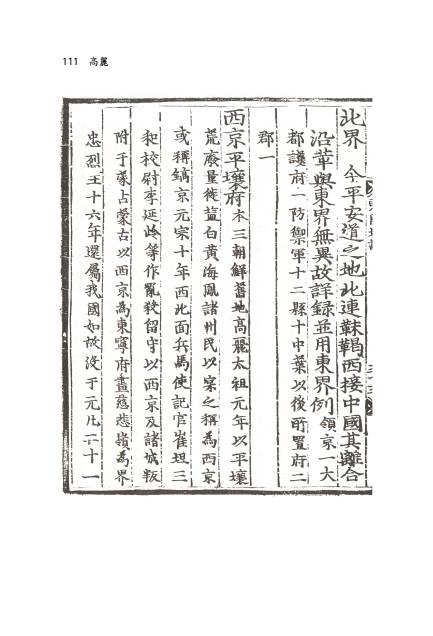 111 高麗
北界 今平安道之地北連靺鞨西接中國其離合
沿革與東界無異故詳錄並用東界例 領京一大
都護府一防禦軍十二縣十中葉以後所置府二
郡一
西京平壤府本三朝鮮舊地高麗太祖元年以平壤
荒廢量徙塩白黄海鳳諸州民以宲之稱為西京
或稱鎬京元宗十年西北面兵馬使記官崔坦三
和校尉李延岭等作亂殺留守以西京及諸城叛
附于蒙占蒙古以西京為東寧府畫慈悲嶺為界
忠烈王十六年還屬我國如故沒于元凡二十一